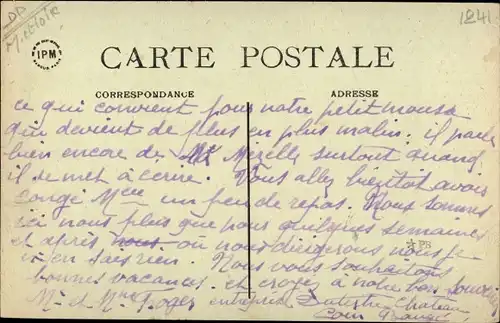 1241
IPM
CARTE POSTALE
CORRESPONDANCE
ADRESSE
ce qui convient pour notre petit mousse
qui devient de plus en plus malin. il parle
bien encore de Mezelle surtout quand
il se met à écrire. Vous allez bientôt avoir
congé un peu de repos. Nous sommes
ici nous plus que pour quelques semaines
et après nous où nous dirigerons nous je
n'en sais rien. Nous vous souhaitons
bonnes vacances. et croyez à notre bon souvenir
Mr et Mme Roger